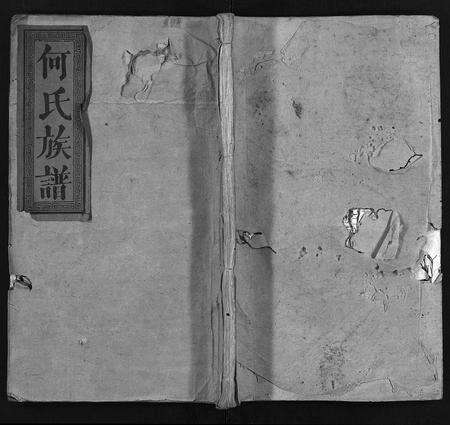 何氏族譜